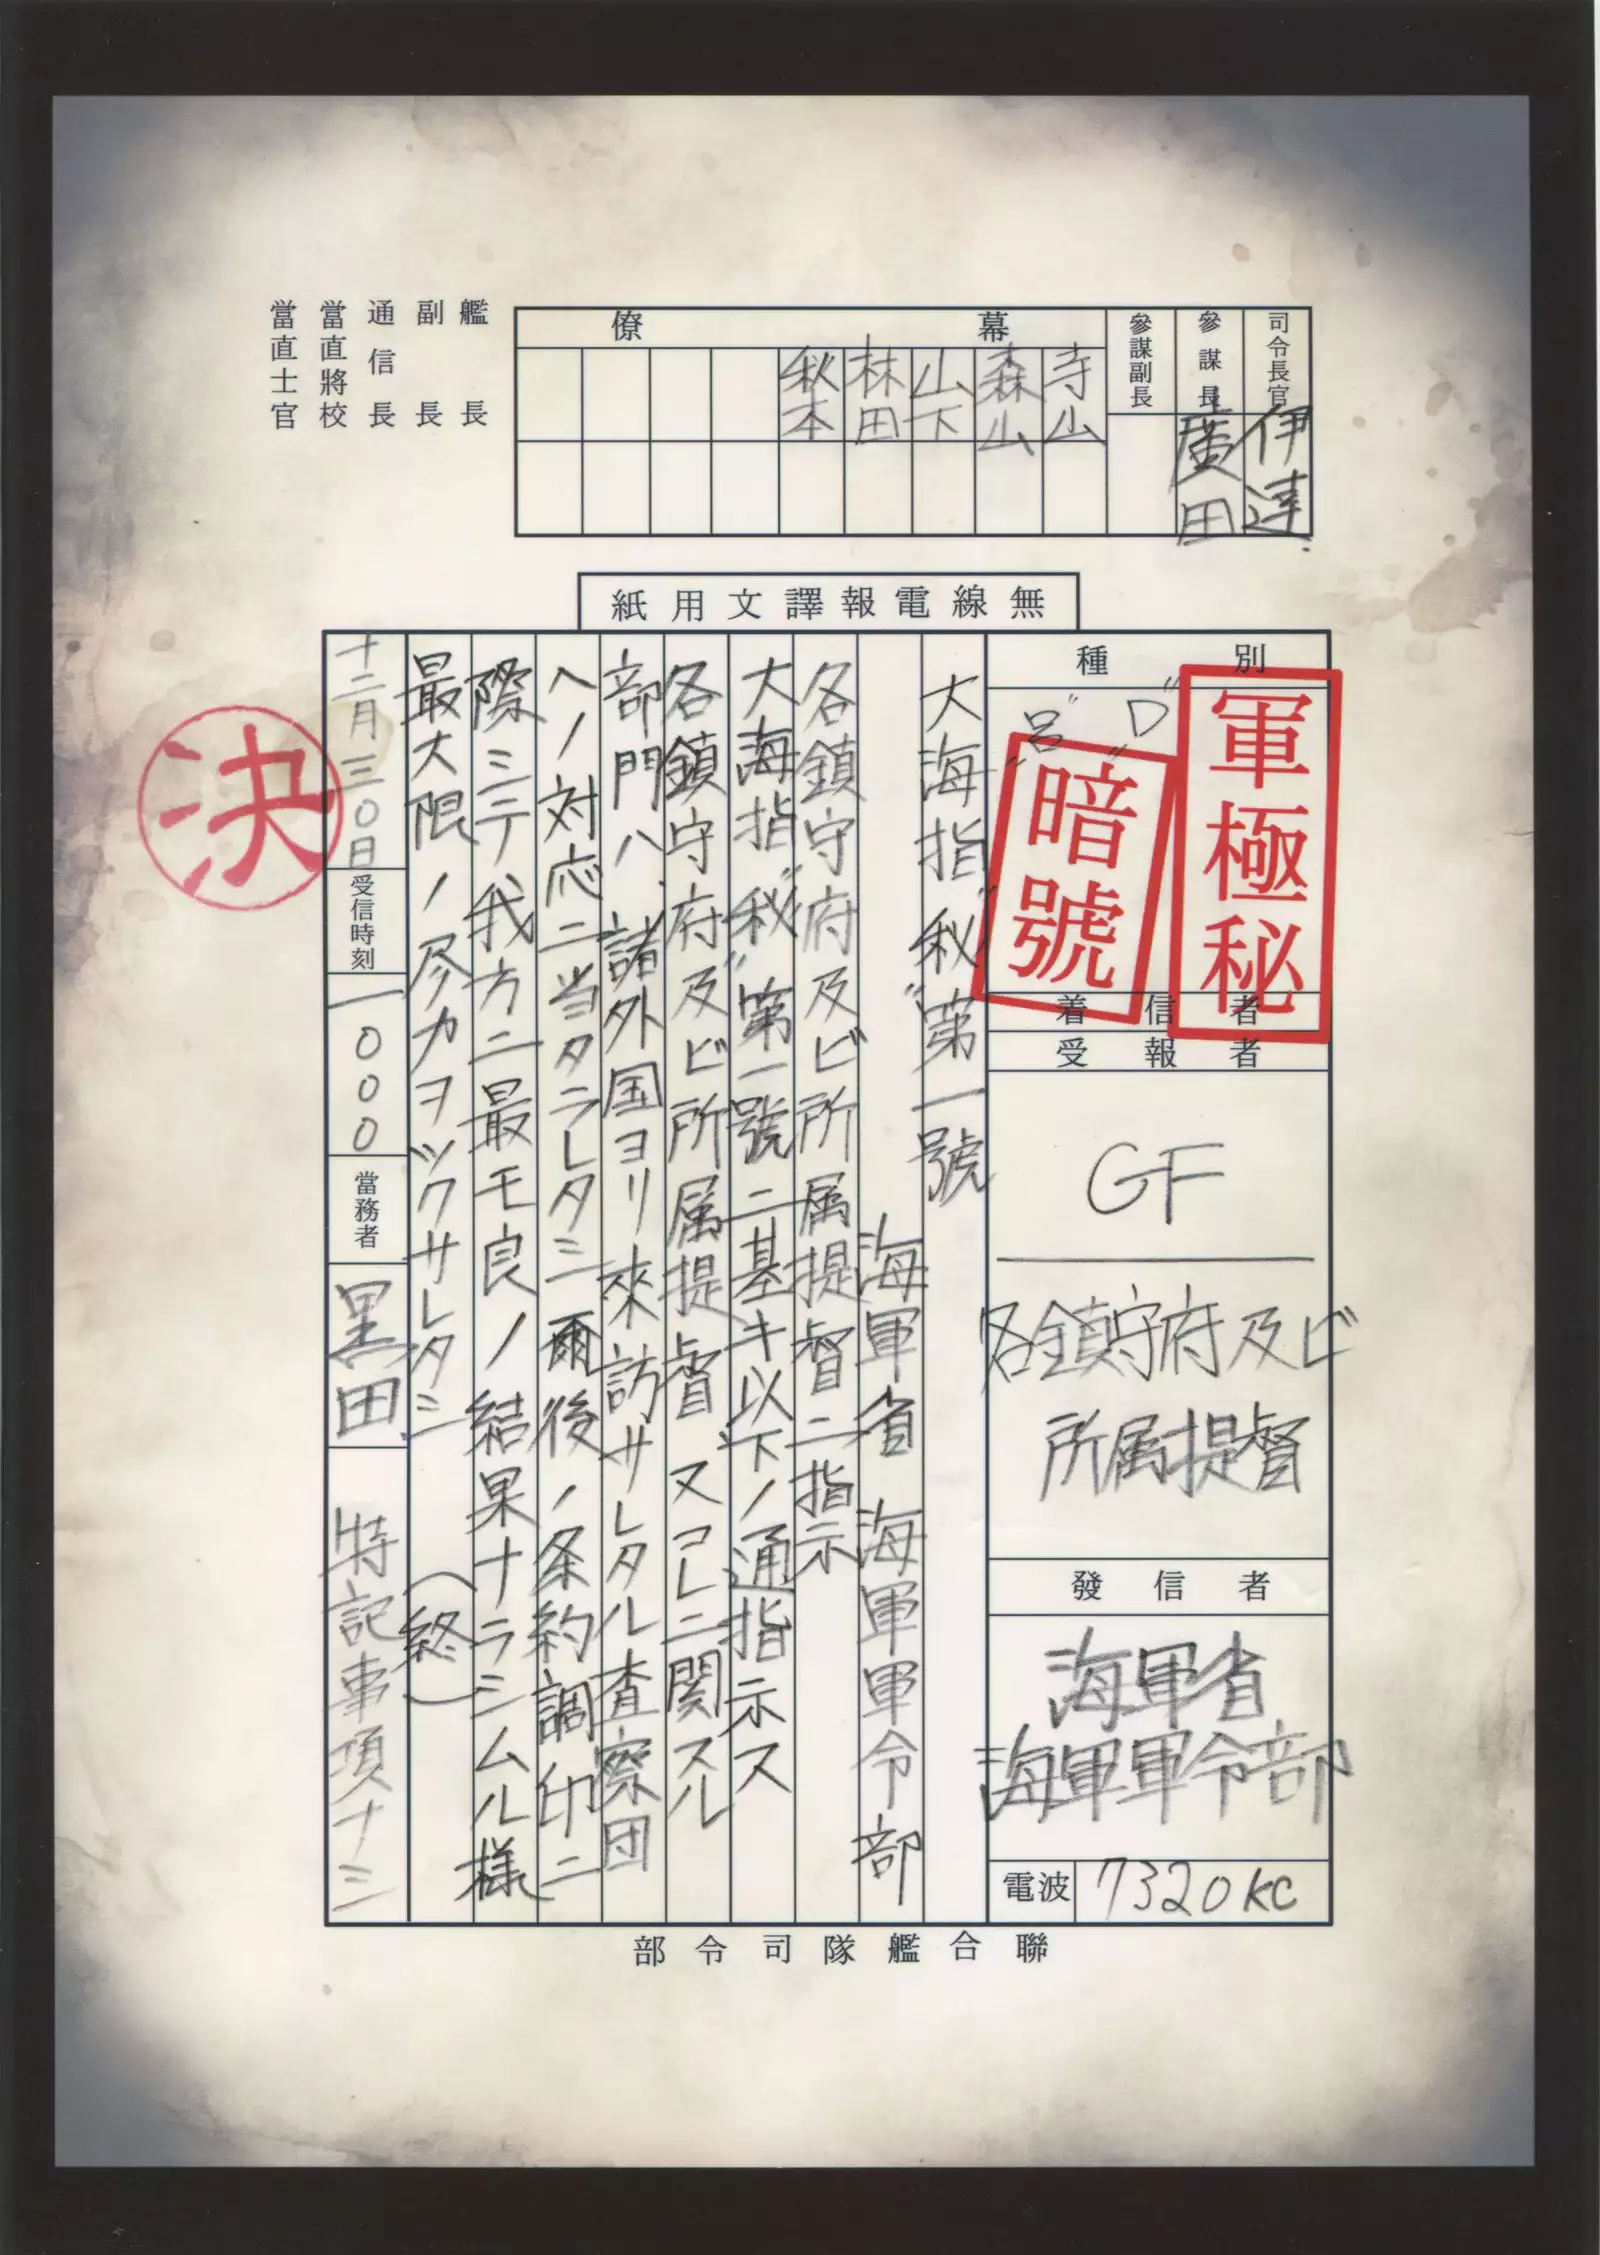 司令長官
伊達
參謀長
廣田
參謀副長
幕僚
寺山
森山
山下
林田
秋本
艦長
副長
通信長
當直將校
當直士官
無線電報譯文用紙
種別
"D"
"呂"
軍極秘
暗號
着信者
受報者
GF
各鎮守府及ビ
所属提督
發信者
海軍省
海軍軍令部
電波
7320KC
大海指"秘"第一號
海軍省 海軍軍令部
各鎮守府及ビ所属提督ニ指示
大海指"秘"第一號ニ基キ以下ノ通指示ス
各鎮守府及ビ所属提督 又コレニ関スル
部門ハ、諸外国ヨリ来訪サレタル査察団
ヘノ対応ニ当タラレタシ 爾後ノ条約調印ニ
際シテ我方ニ最モ良ノ結果ナラシムル様
最大限ノ尽力ヲツクサレタシ
(終)
十二月三〇日
受信時刻
一000
當務者
黒田
特記事項ナシ
決
聯合艦隊司令部